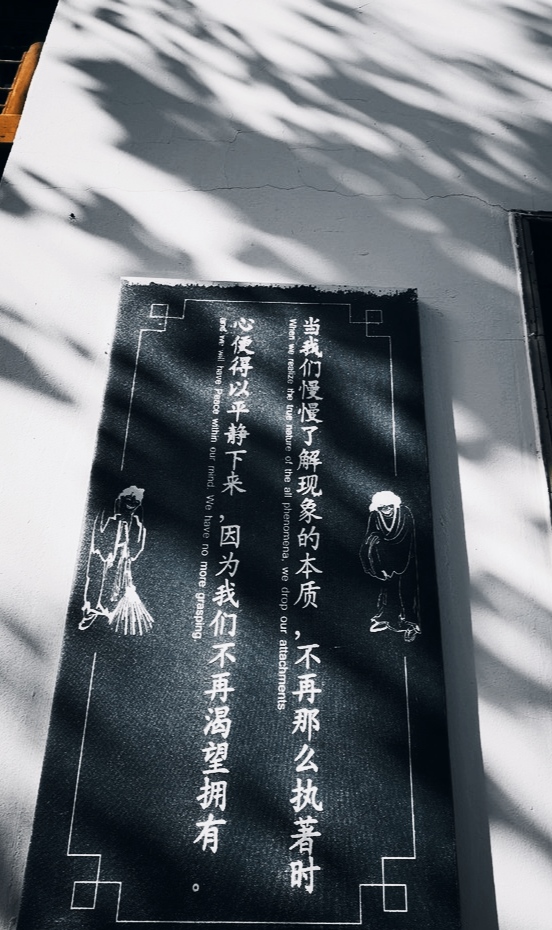 当我们慢慢了解现象的本质，不再那么执著时
When we realize the true nature of the all phenomena, we drop our attachments
心便得以平静下来，因为我们不再渴望拥有。
and we will have Peace within our mind. We have no more grasping